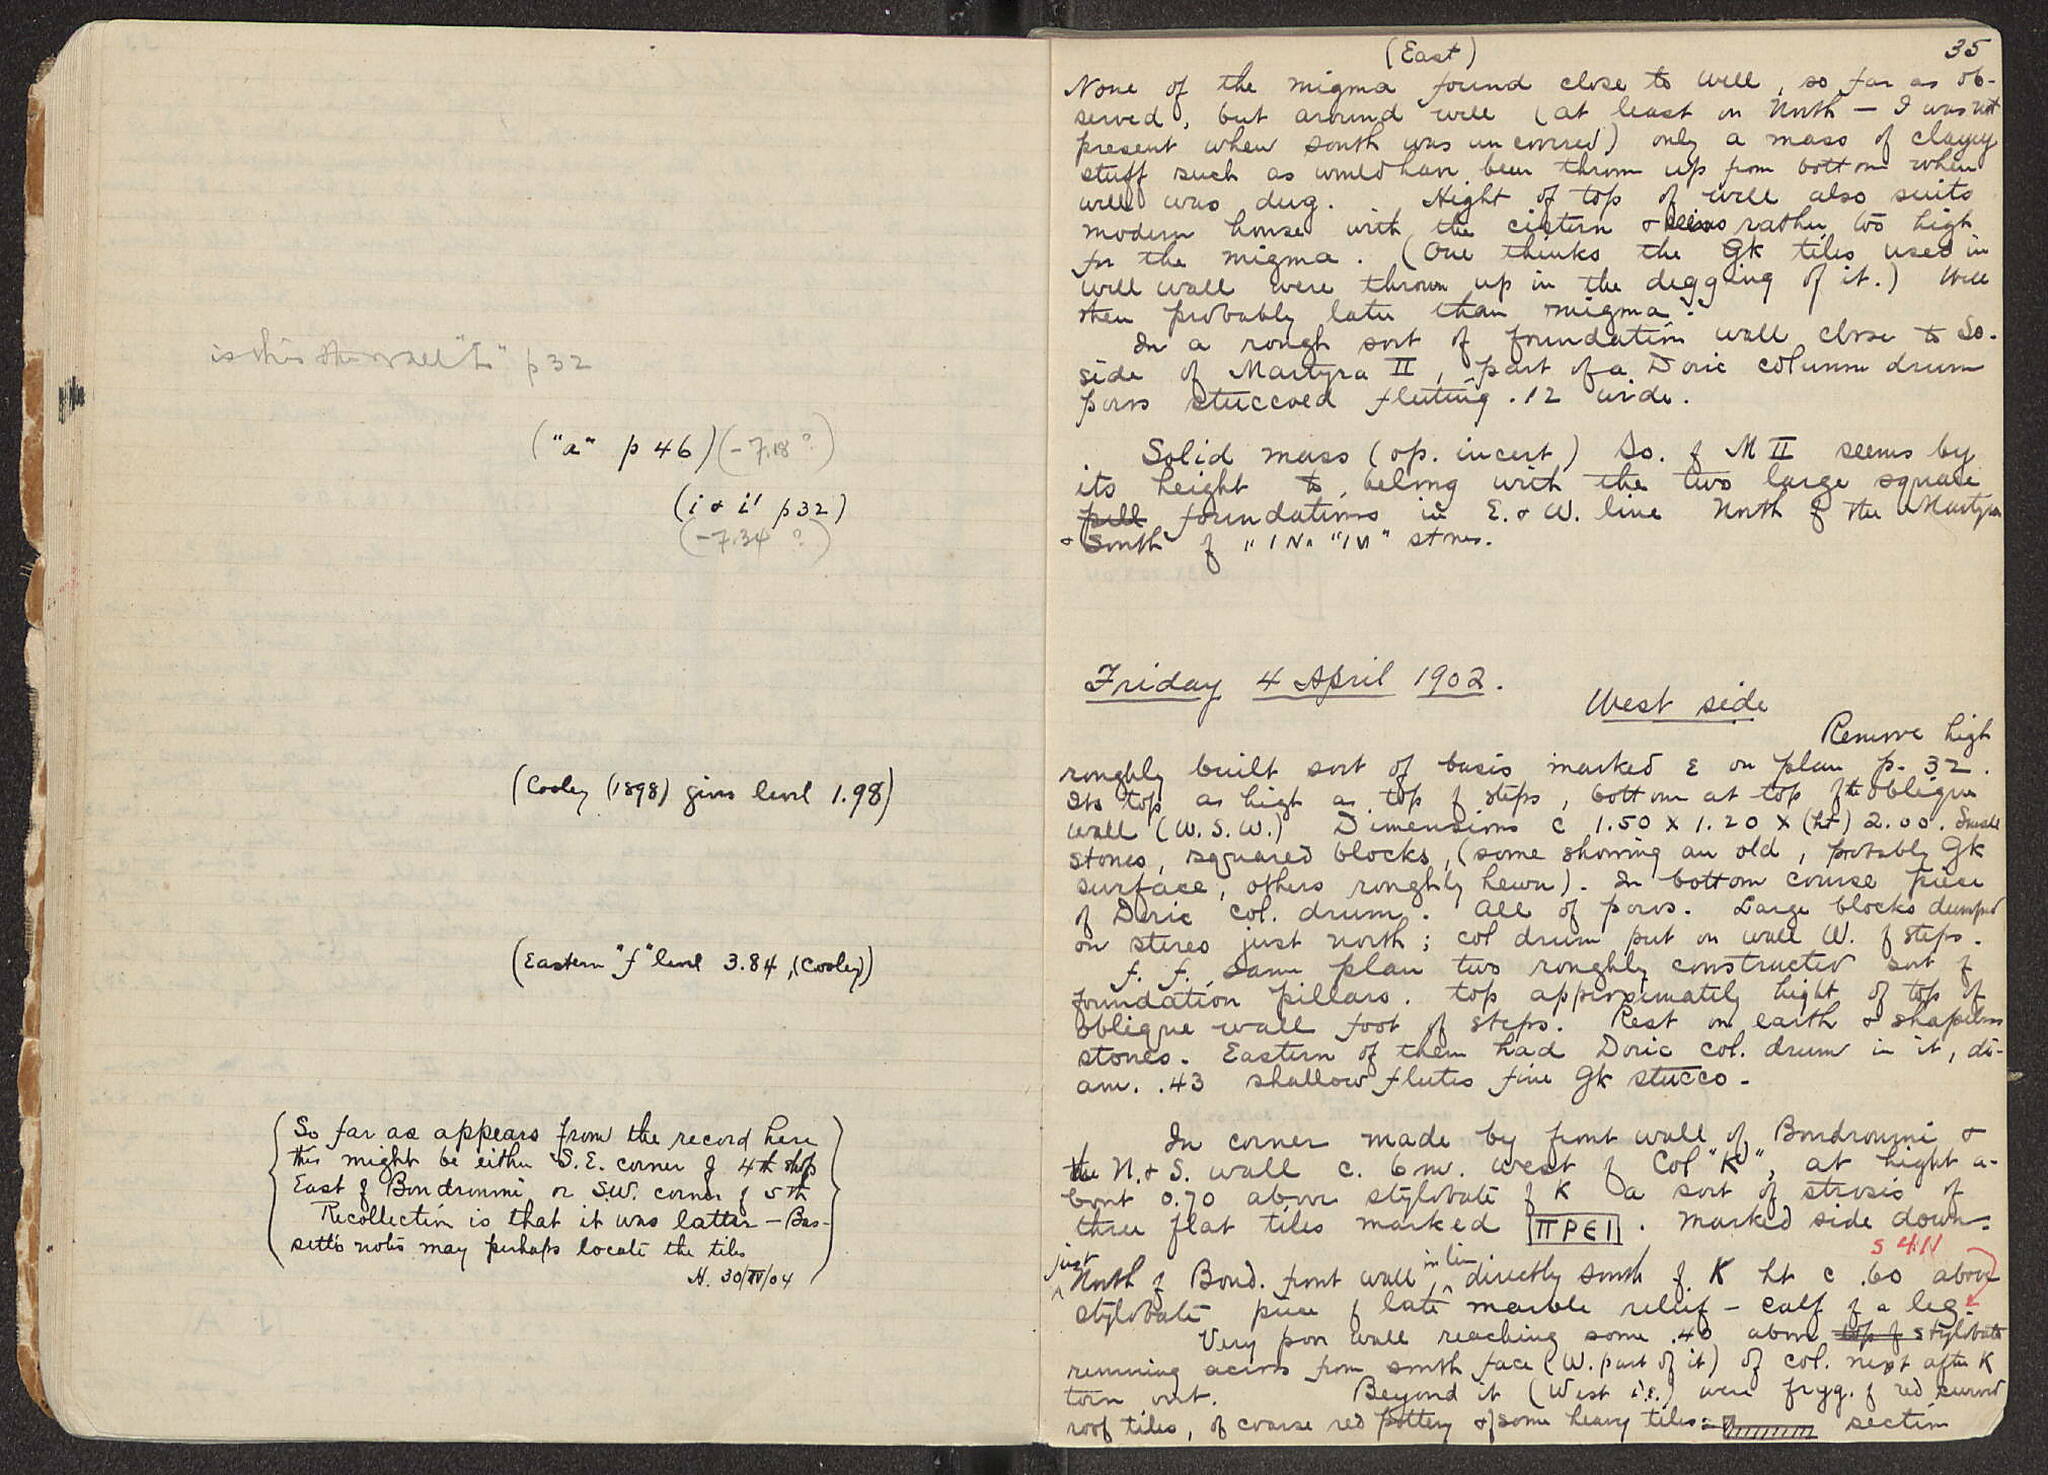 is this the wall "L" p 32
("a" p 46) (-7.18 ?)
(i & i' p 32)
(-7.34 ?)
(Cooley (1898) gives level 1.98)
(Eastern "f" level 3.84, (Cooley))
So far as appears from the record here
this might be either S.E. corner of 4th shop
East of Boudroumi or S.W. corner of 5th
Recollection is that it was latter — Bas-
sett's notes may perhaps locate the tiles
H. 30/IV/04
(East)
35
None of the migma found close to well, so far as ob-
served, but around well (at least on North — I was not
present when south was uncovered) only a mass of clayey
stuff such as would have been thrown up from bottom when
well was dug. Hight of top of well also suits
modern house with the cistern & seems rather too high
for the migma. (One thinks the Gk tiles used in
well wall were thrown up in the degging of it.) Well
then probably later than migma.
In a rough sort of foundation wall close to So.
side of Martyra II, part of a Doric column drum
poros stuccoed fluting .12 wide.
Solid mass (op. incert) So. of M II seems by
its height to belong with the two large square
pill foundations in E. & W. line North of the Martyra
& South of "IN" "IVI" stones.
Friday 4 April 1902.
West side
Remove high
roughly built sort of basis marked ε on plan p. 32.
Its top as high as top of steps, bottom at top of the oblique
wall (W.S.W.) Dimensions c 1.50 x 1.20 x (ht) 2.00. Small
stones, squared blocks, (some showing an old, probably Gk
surface, others roughly hewn). In bottom course piece
of Doric col. drum. All of poros. Large blocks dumped
on stereo just north; col drum put on wall W. of steps.
f. f. same plan two roughly constructed sort of
foundation pillars. top approximately hight of top of
oblique wall foot of steps. Rest on earth & shapeless
stones. Eastern of them had Doric col. drum in it, di-
am. .43 shallow flutes fine Gk stucco.
In corner made by front wall of Boudroumi &
the N. & S. wall c. 6 m. west of Col "K", at hight a-
bout 0.70 above stylobate of K a sort of strosis of
three flat tiles marked ΠΡΕΙ. Marked side down.
S 411
just
North of Boud. front wall, in line directly south of K ht c .60 above
stylobate piece of late marble relief — calf of a leg.
Very poor wall reaching some .40 above top of stylobate
running across from south face (W. part of it) of col. next after K
torn out. Beyond it (West i.e.) were fragg. of red curved
roof tiles, of coarse red pottery & of some heavy tiles = section